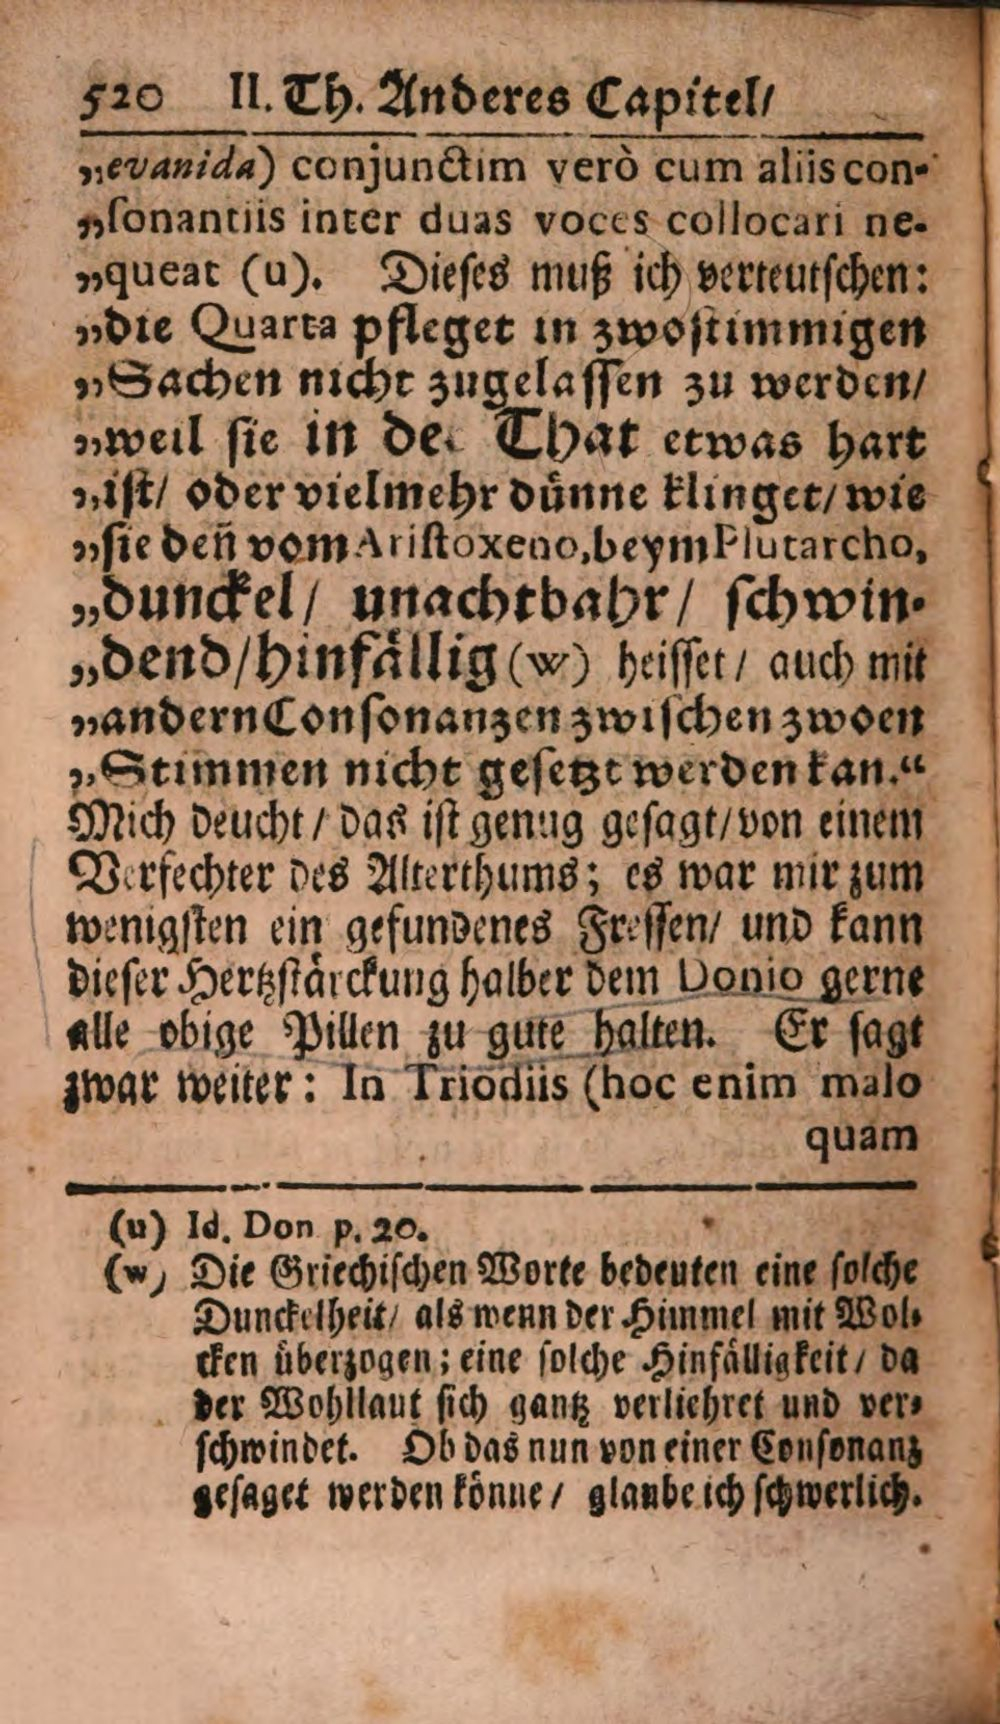 520 II. Th. Anderes Capitel/
„evanida) conjunctim verò cum aliis con-
„ſonantiis inter duas voces collocari ne-
„queat (u). Dieſes muß ich verteutſchen:
„die Quarta pfleget in zwoſtimmigen
„Sachen nicht zugelaſſen zu werden/
„weil ſie in der That etwas hart
„iſt/ oder vielmehr duͤnne klinget/ wie
„ſie deñ vom Ariſtoxeno, beym Plutarcho,
„dunckel/ unachtbahr/ ſchwin-
„dend/ hinfaͤllig (w) heiſſet/ auch mit
„andern Conſonanzen zwiſchen zwoen
„Stimmen nicht geſetzt werden kan.“
Mich deucht/ das iſt genug geſagt/ von einem
Verfechter des Alterthums; es war mir zum
wenigſten ein gefundenes Freſſen/ und kann
dieſer Hertzſtaͤrckung halber dem Donio gerne
alle obige Pillen zu gute halten. Er ſagt
zwar weiter: In Triodiis (hoc enim malo
quam
(u) Id. Don p. 20.
(w) Die Griechiſchen Worte bedeuten eine ſolche
Dunckelheit/ als wenn der Himmel mit Wol-
cken uͤberzogen; eine ſolche Hinfaͤlligkeit/ da
der Wohllaut ſich gantz verliehret und ver-
ſchwindet. Ob das nun von einer Conſonanz
geſaget werden koͤnne/ glaube ich ſchwerlich.